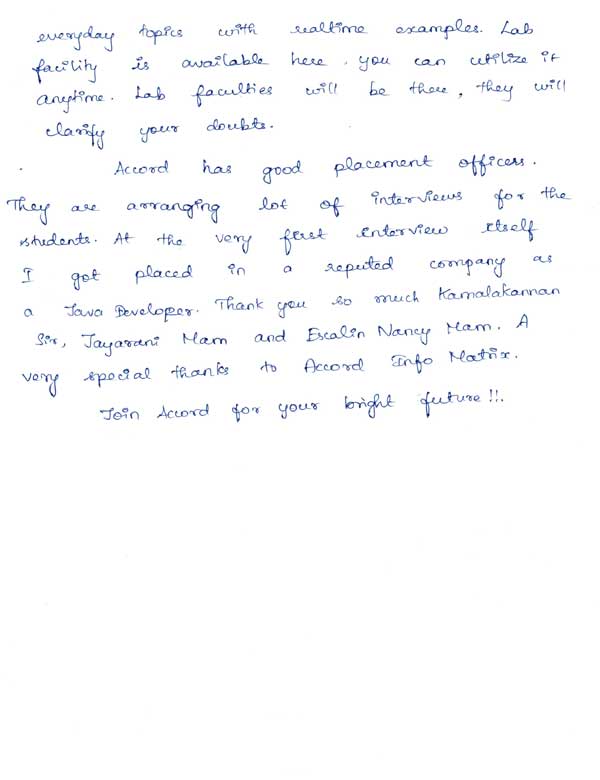 everyday topics with realtime examples. Lab
facility is available here. you can utilize it
anytime. Lab faculties will be there, they will
clarify your doubts.
Accord has good placement officers.
They are arranging lot of interviews for the
students. At the very first interview itself
I got placed in a reputed company as
a Java Developer. Thank you so much Kamalakannan
Sir, Jayarani Mam and Escalin Nancy Mam. A
very special thanks to Accord Info Matrix.
Join Accord for your bright future!!.